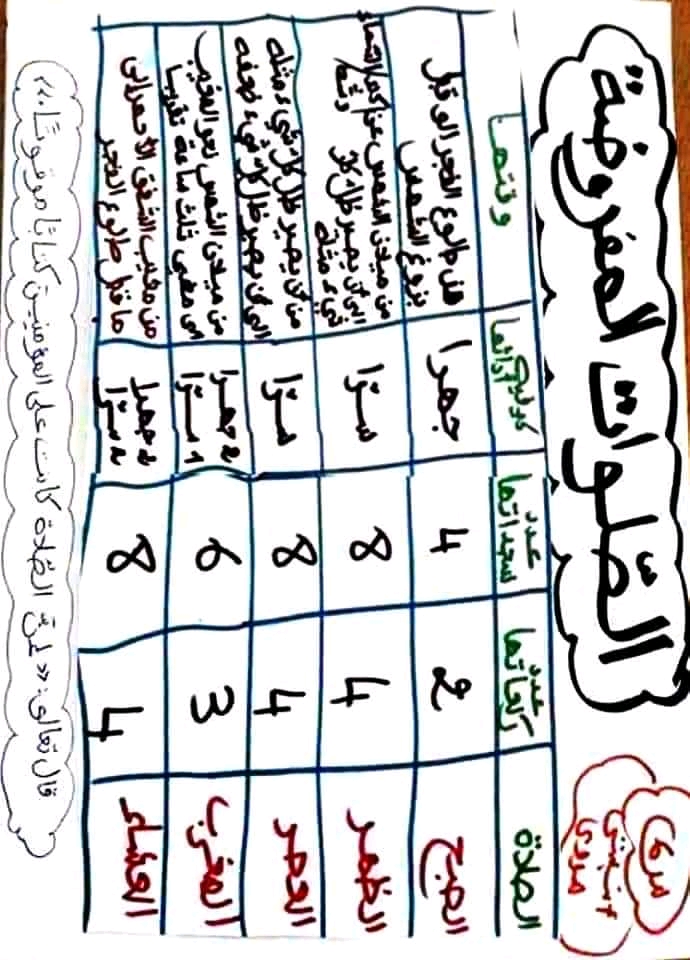 الصّلوات المفروضة
الصلاة عدد ركعاتها عدد سجداتها كيفية أدائها وقتها
الصبح 2 4 جهرا من طلوع الفجر إلى قبل
بزوغ الشمس
الظهر 4 8 سرّا من ميلان الشمس عن كبد السماء
إلى أن يصير ظل كل
شيء مثله
العصر 4 8 سرّا من أن يصير ظل كل شيء مثله
إلى أن يصير ظل كل شيء نصفه
المغرب 3 6 2 جهرا من ميلان الشمس نحو المغيب
1 سرّا إلى مضي ثلث ساعة تقريبا
العشاء 4 8 2 جهرا من مغيب الشفق الأحمر إلى
2 سرّا ما قبل طلوع الفجر
قال تعالى: « إنّ الصّلاة كانت على المؤمنين كتابا موقوتا.»